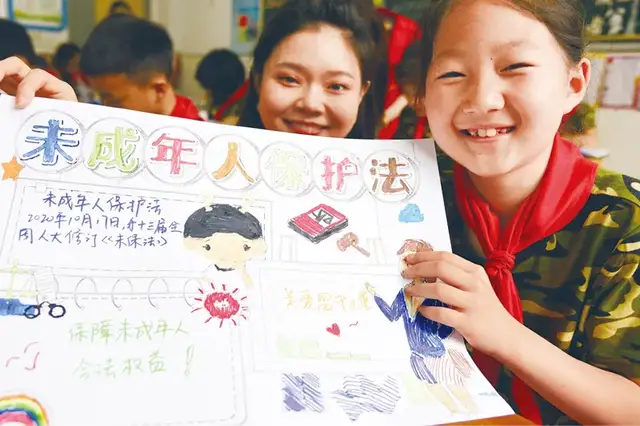 未成年人保护法
未成年人保护法
2020年10月17日,第十三届全
国人大修订《未保法》
关爱留守儿童
保障未成年人
合法权益!